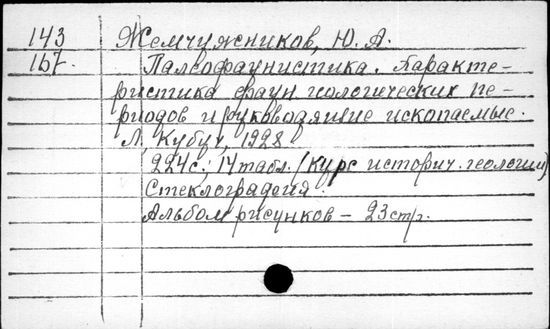 143 Жемчужников, Ю. А.
167. Палеофаунистика. Характе-
ристика фаун геологических пе-
риодов и руководящие ископаемые.
Л., Кубуч, 1928
224с.; 14табл. (Курс историч. геологии)
Стеклография.
Альбом рисунков – 23стр.